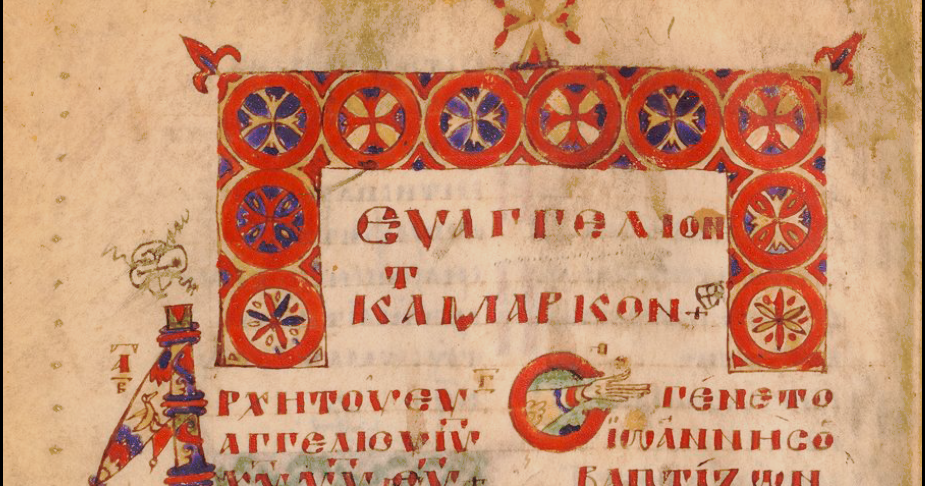 ЄΥΑΓΓЄΛΙΟΝ
Τ
ΚΑ ΜΑΡΚΟΝ +
ΑΡΧΗ ΤΟΥ ЄΥ
ΑΓΓЄΛΙΟΥ ΙΥ
ЄΓЄ́ΝЄΤΟ
ΙΩΆΝΝΗϹ Ο
ΒΑΠΤΊΖΩΝ